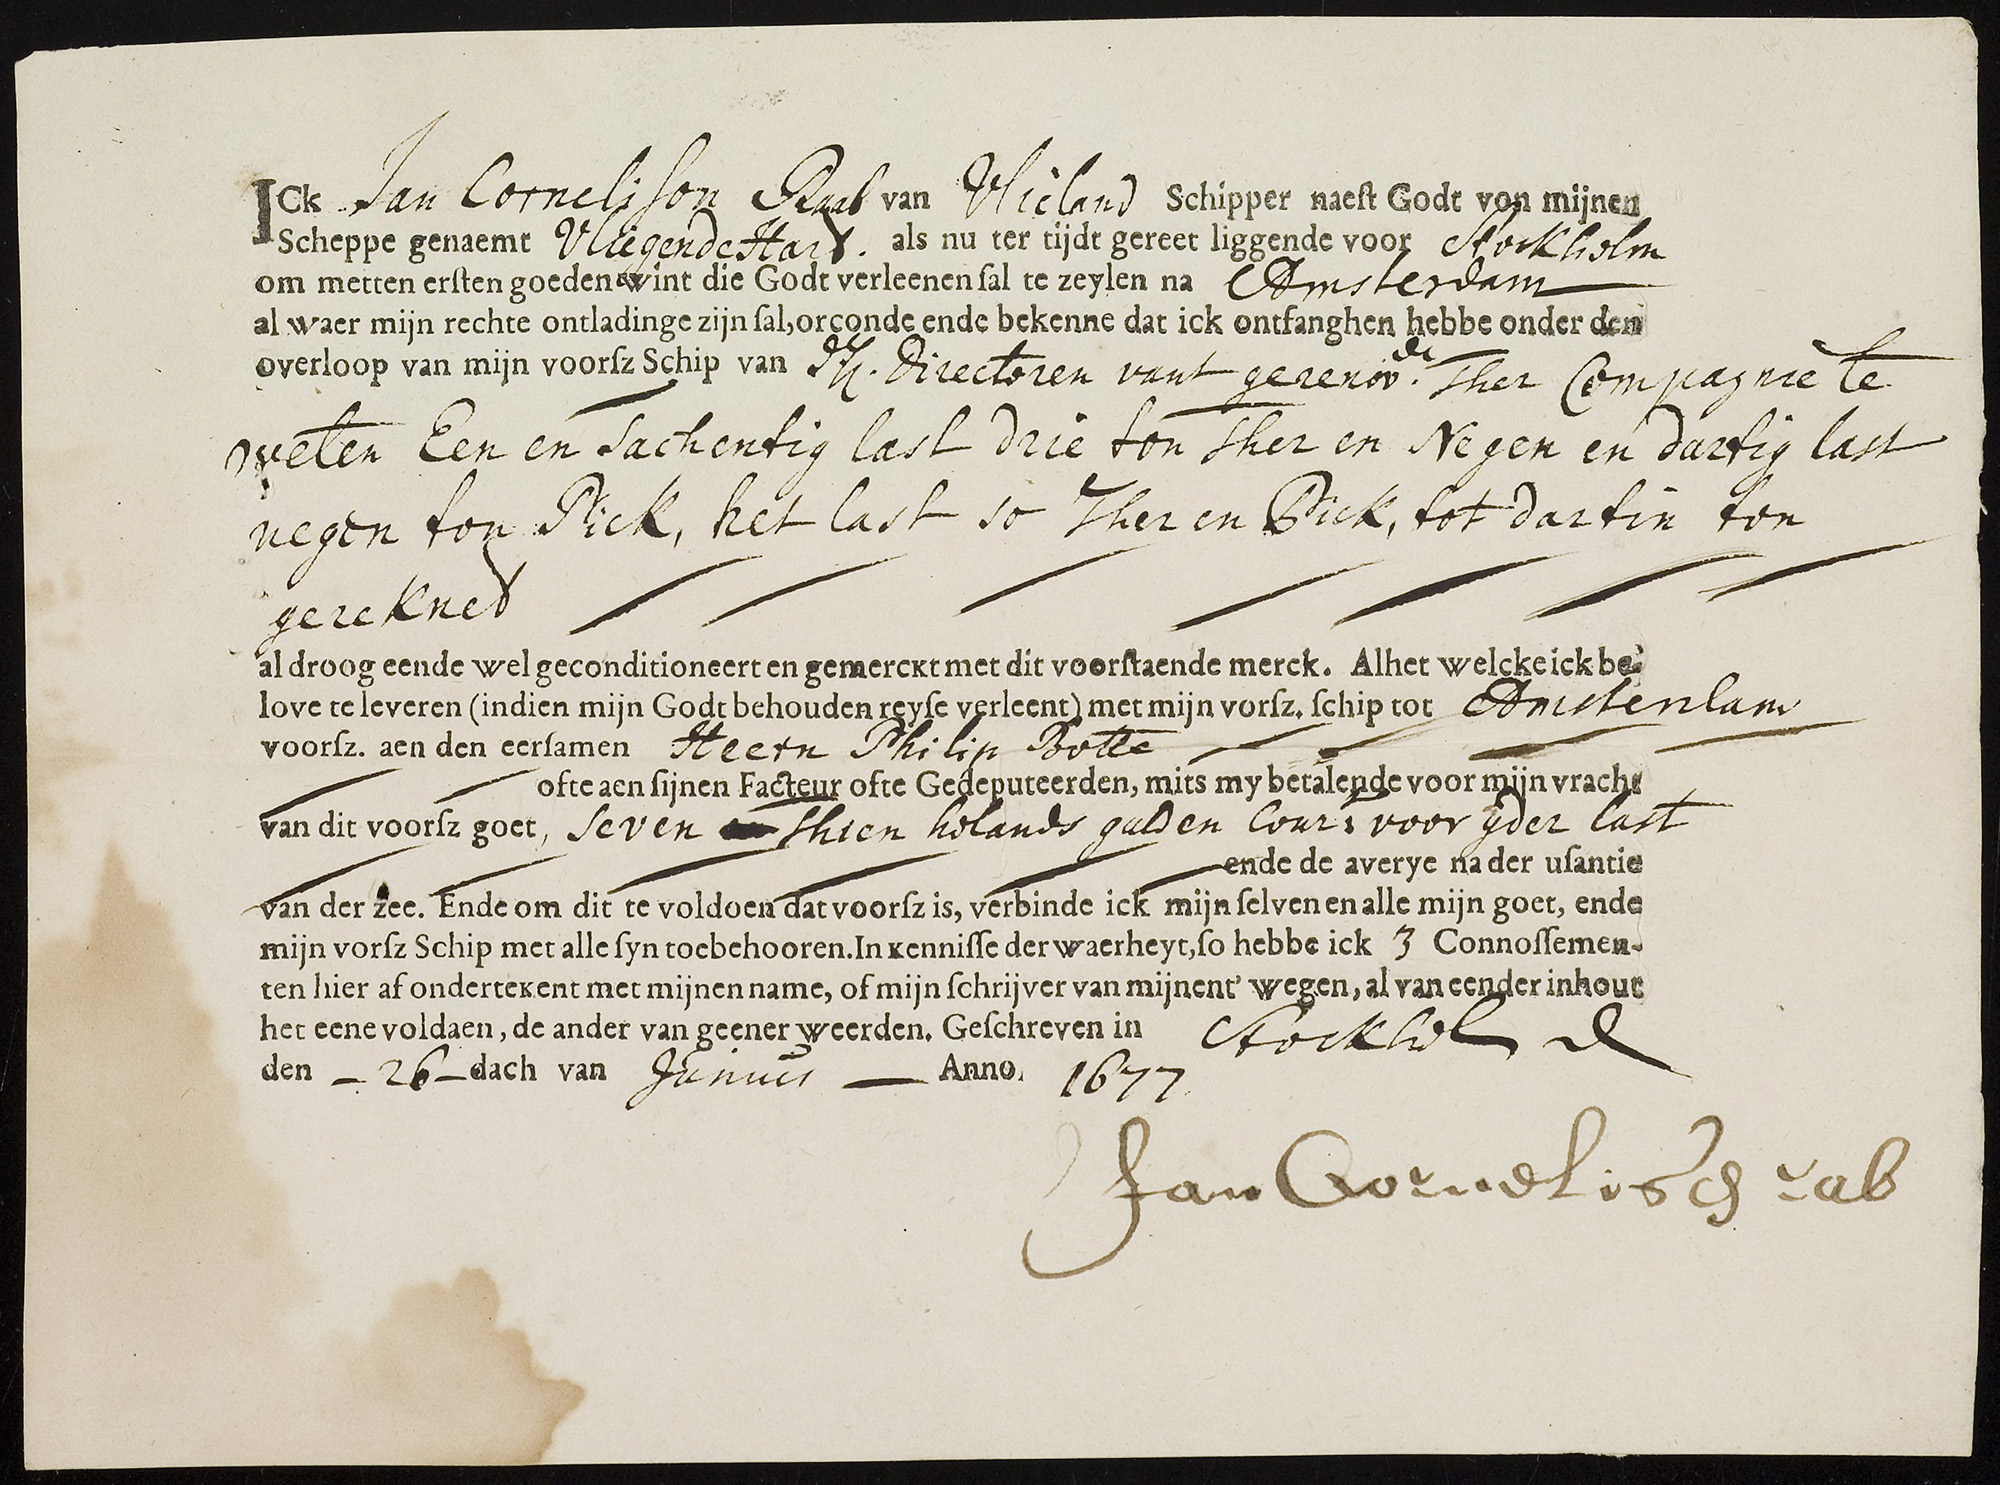 ICk Jan Cornelisson Raab van Vlieland Schipper naeſt Godt von mijnen
Scheppe genaemt Vliegende Hart. als nu ter tijdt gereet liggende voor Stockholm
om metten erſten goeden wint die Godt verleenen ſal te zeylen na Amsterdam
al waer mijn rechte ontladinge zijn ſal, orconde ende bekenne dat ick ontfanghen hebbe onder den
overloop van mijn voorſz Schip van Directoren vant Ther Compagnie te
weten Een en tachentig last drie ton Ther en Negen en dartig last
negen ton Pick, het last so Ther en Pick, tot dartin ton
gereKned
al droog eende wel geconditioneert en gemerckt met dit voorſtaende merck. Alhet welcke ick be-
love te leveren (indien mijn Godt behouden reyſe verleent) met mijn vorſz. ſchip tot Amsterdam
voorſz. aen den eerſamen Heern Philip Botte
ofte aen ſijnen Facteur ofte Gedeputeerden, mits my betalende voor mijn vracht
van dit voorſz goet, seven thien holands gulden Cour: voor yder last
ende de averye na der uſantie
van der zee. Ende om dit te voldoen dat voorſz is, verbinde ick mijn ſelven en alle mijn goet, ende
mijn vorſz Schip met alle ſyn toebehooren. In kenniſſe der waerheyt, ſo hebbe ick 3 Connoſſemen-
ten hier af ondertekent met mijnen name, of mijn ſchrijver van mijnent' wegen, al van eender inhout
het eene voldaen, de ander van geener weerden. Geſchreven in Stockhol d
den 26 dach van Junius Anno. 1677
Jan Cornelisch rab